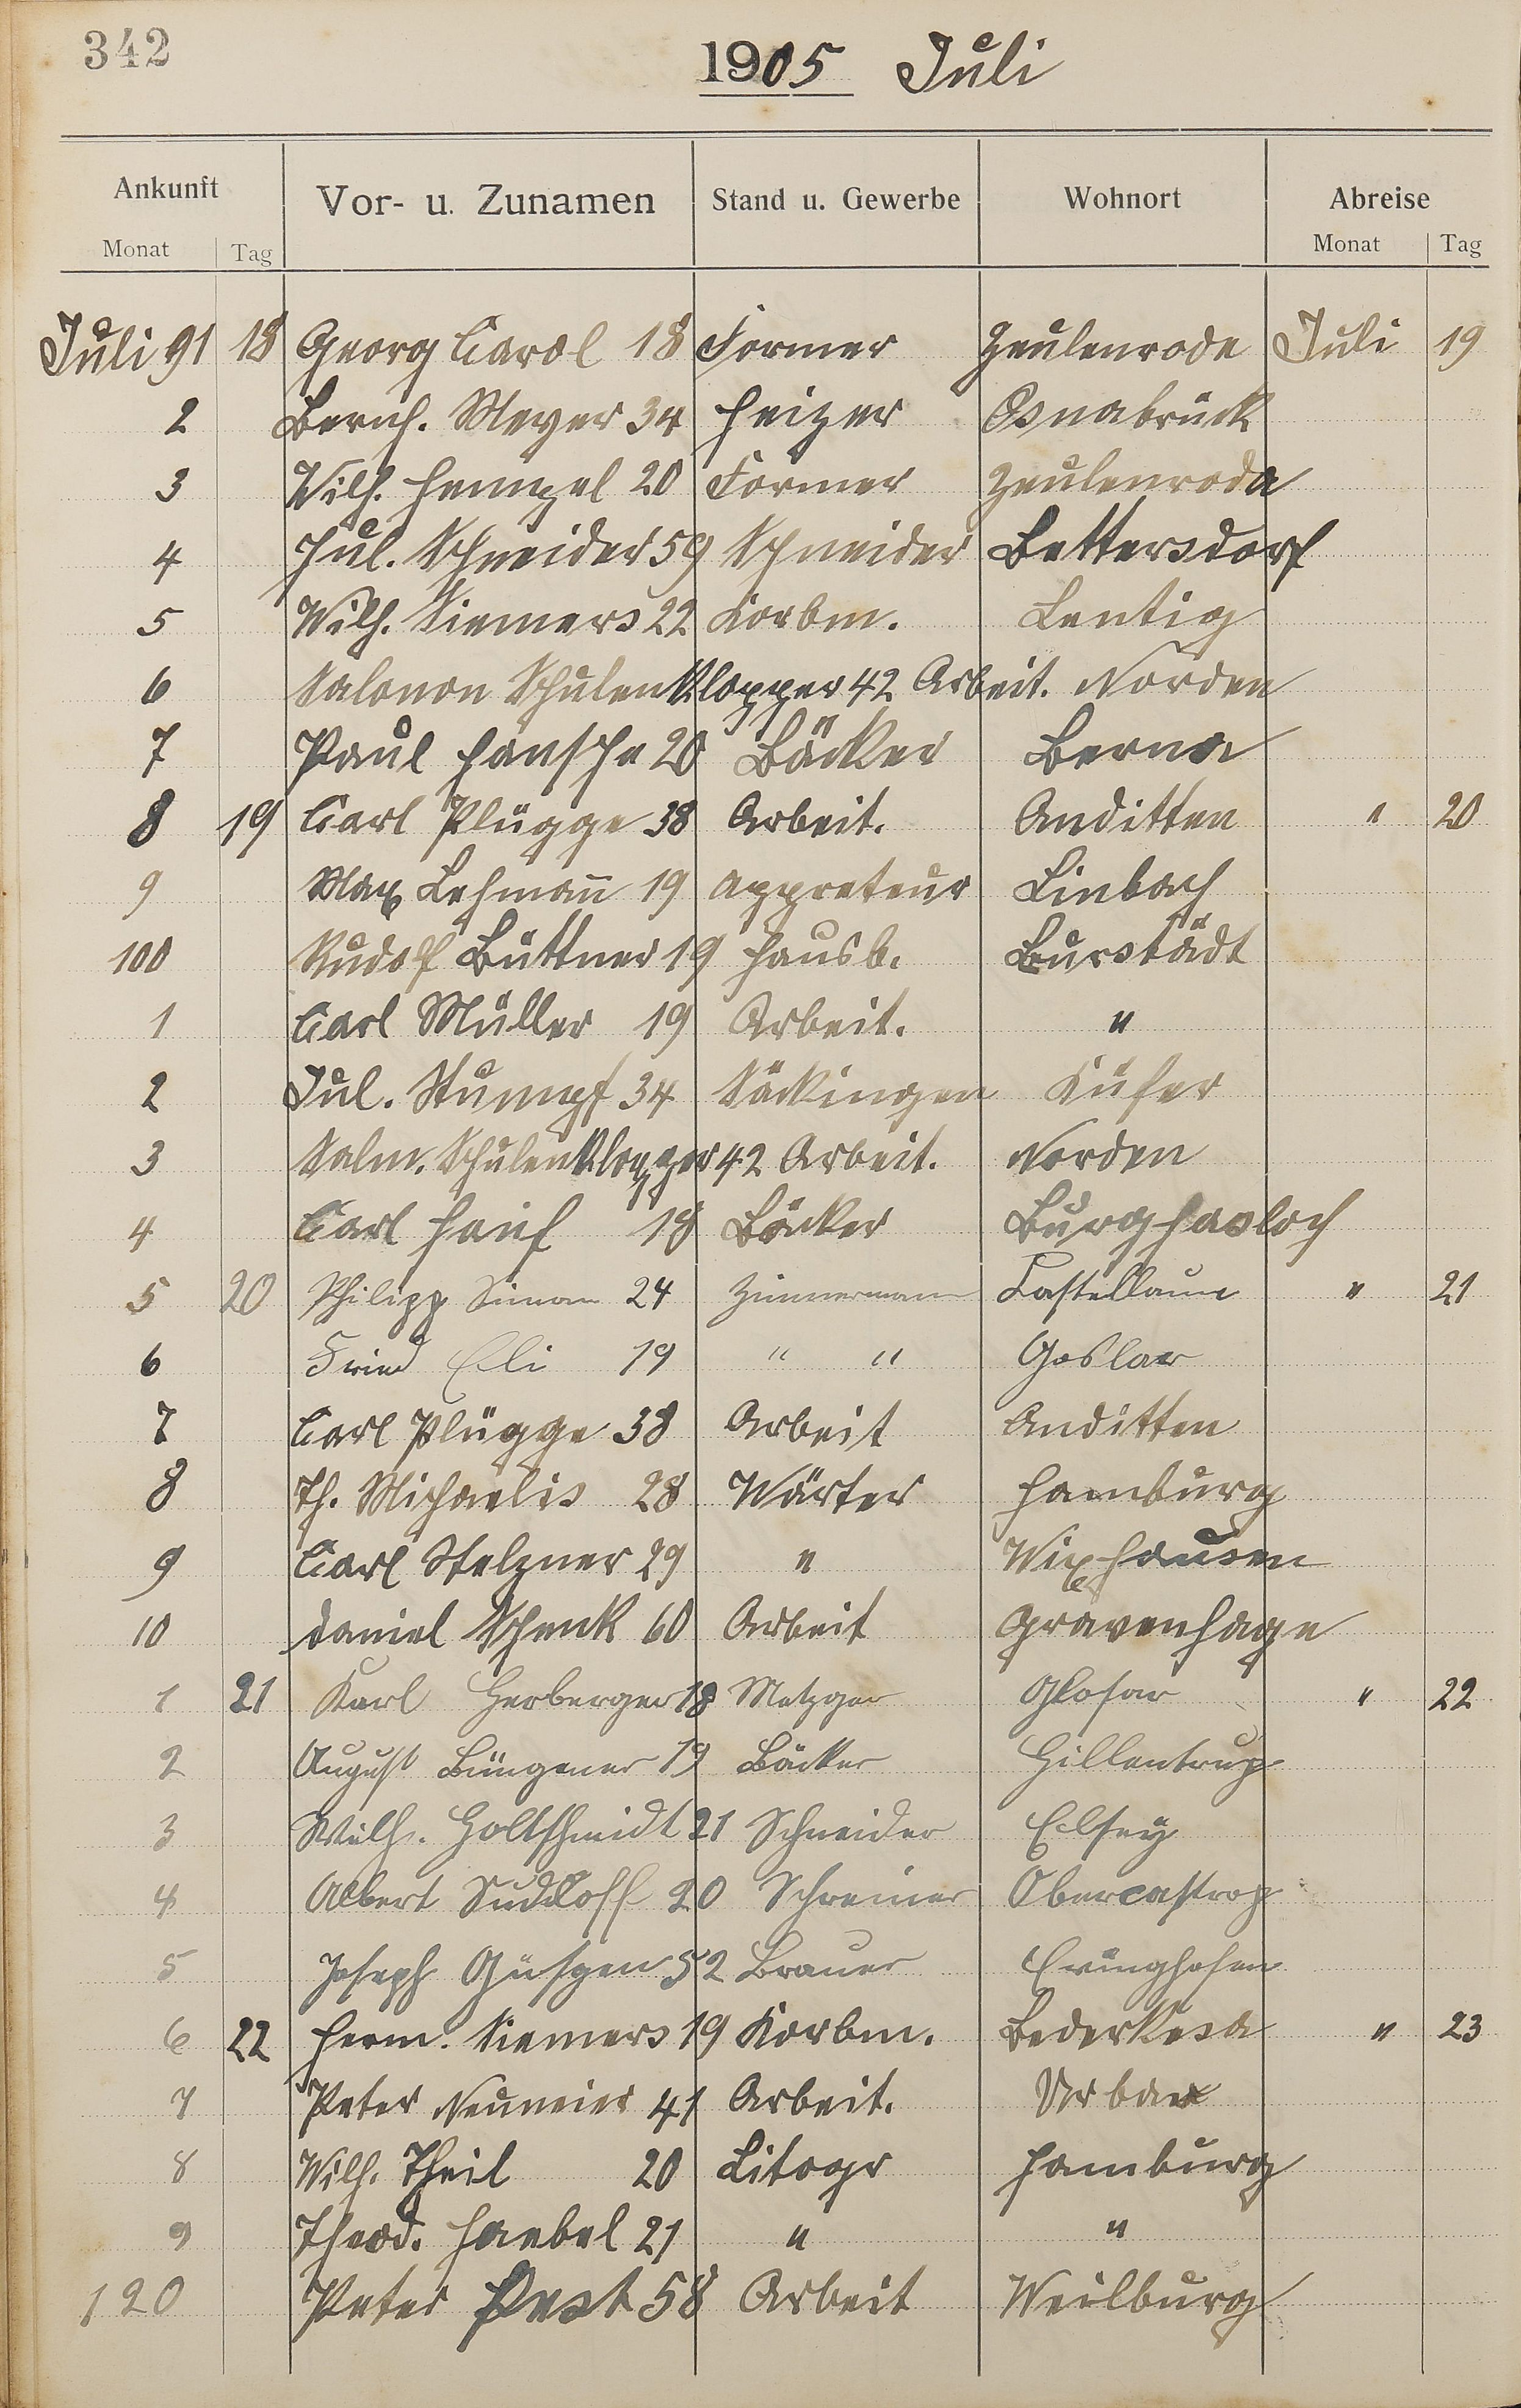 342
1905 Juli
Ankunft Vor- u. Zunamen Stand u. Gewerbe Wohnort Abreise
Monat Tag Monat Tag
Juli 91 18 Georg Carol 18 Former Zeulenrode Juli 19
2 Bernh. Meyer 34 Heizer Osnabrück
3 Wilh. Hempel 20 Former Zeulenroda
4 Jul. Schneider 59 Schneider Bettersdorf
5 Wilh. Siemers 22 Korbm. Lentig
6 Salonon Schulenklopper 42 Arbeit. Norden
7 Paul Hansche 20 Bäcker Berna
8 19 Carl Plügge 38 Arbeit. Anditten " 20
9 Max Lehmañ 19 Appreteur Linbach
100 Rudolf Büttner 19 Hausb. Burstädt
1 Carl Müller 19 Arbeit. "
2 Jul. Stumpf 34 Säckingen Küfer
3 Salm. Schulenklopper 42 Arbeit. Norden
4 Carl Hauf 18 Bäcker Burghasloch
5 20 Philipp Simon 24 Zimmermann Castellaun " 21
6 Fried Eli 19 " " Goslar
7 Carl Plügge 38 Arbeit Anditten
8 Th. Michaelis 28 Wärter Hamburg
9 Carl Stelzner 29 " Wixhausen
10 Daniel Schenk 60 Arbeit Gravenhage
1 21 Karl Herberger 18 Metzger Glosar " 22
2 August Büngener 19 Bäcker Hillentrup
3 Wilh. Holtschmidt 21 Schneider Elsey
4 Albert Suddloff 20 Schreiner Obercastrop
5 Joseph Güsgen 52 Brauer Eringhofen
6 22 Herm. Siemers 19 Korbm. Bederkesa " 23
7 Peter Neumeier 41 Arbeit. Urbar
8 Wilh. Theil 20 Litogr Hamburg
9 Theod. Haebel 21 " "
120 Peter Pest 58 Arbeit Weilburg